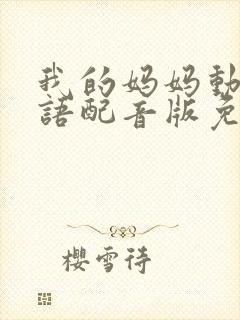 我的妈妈動
語配音版免
櫻雪待